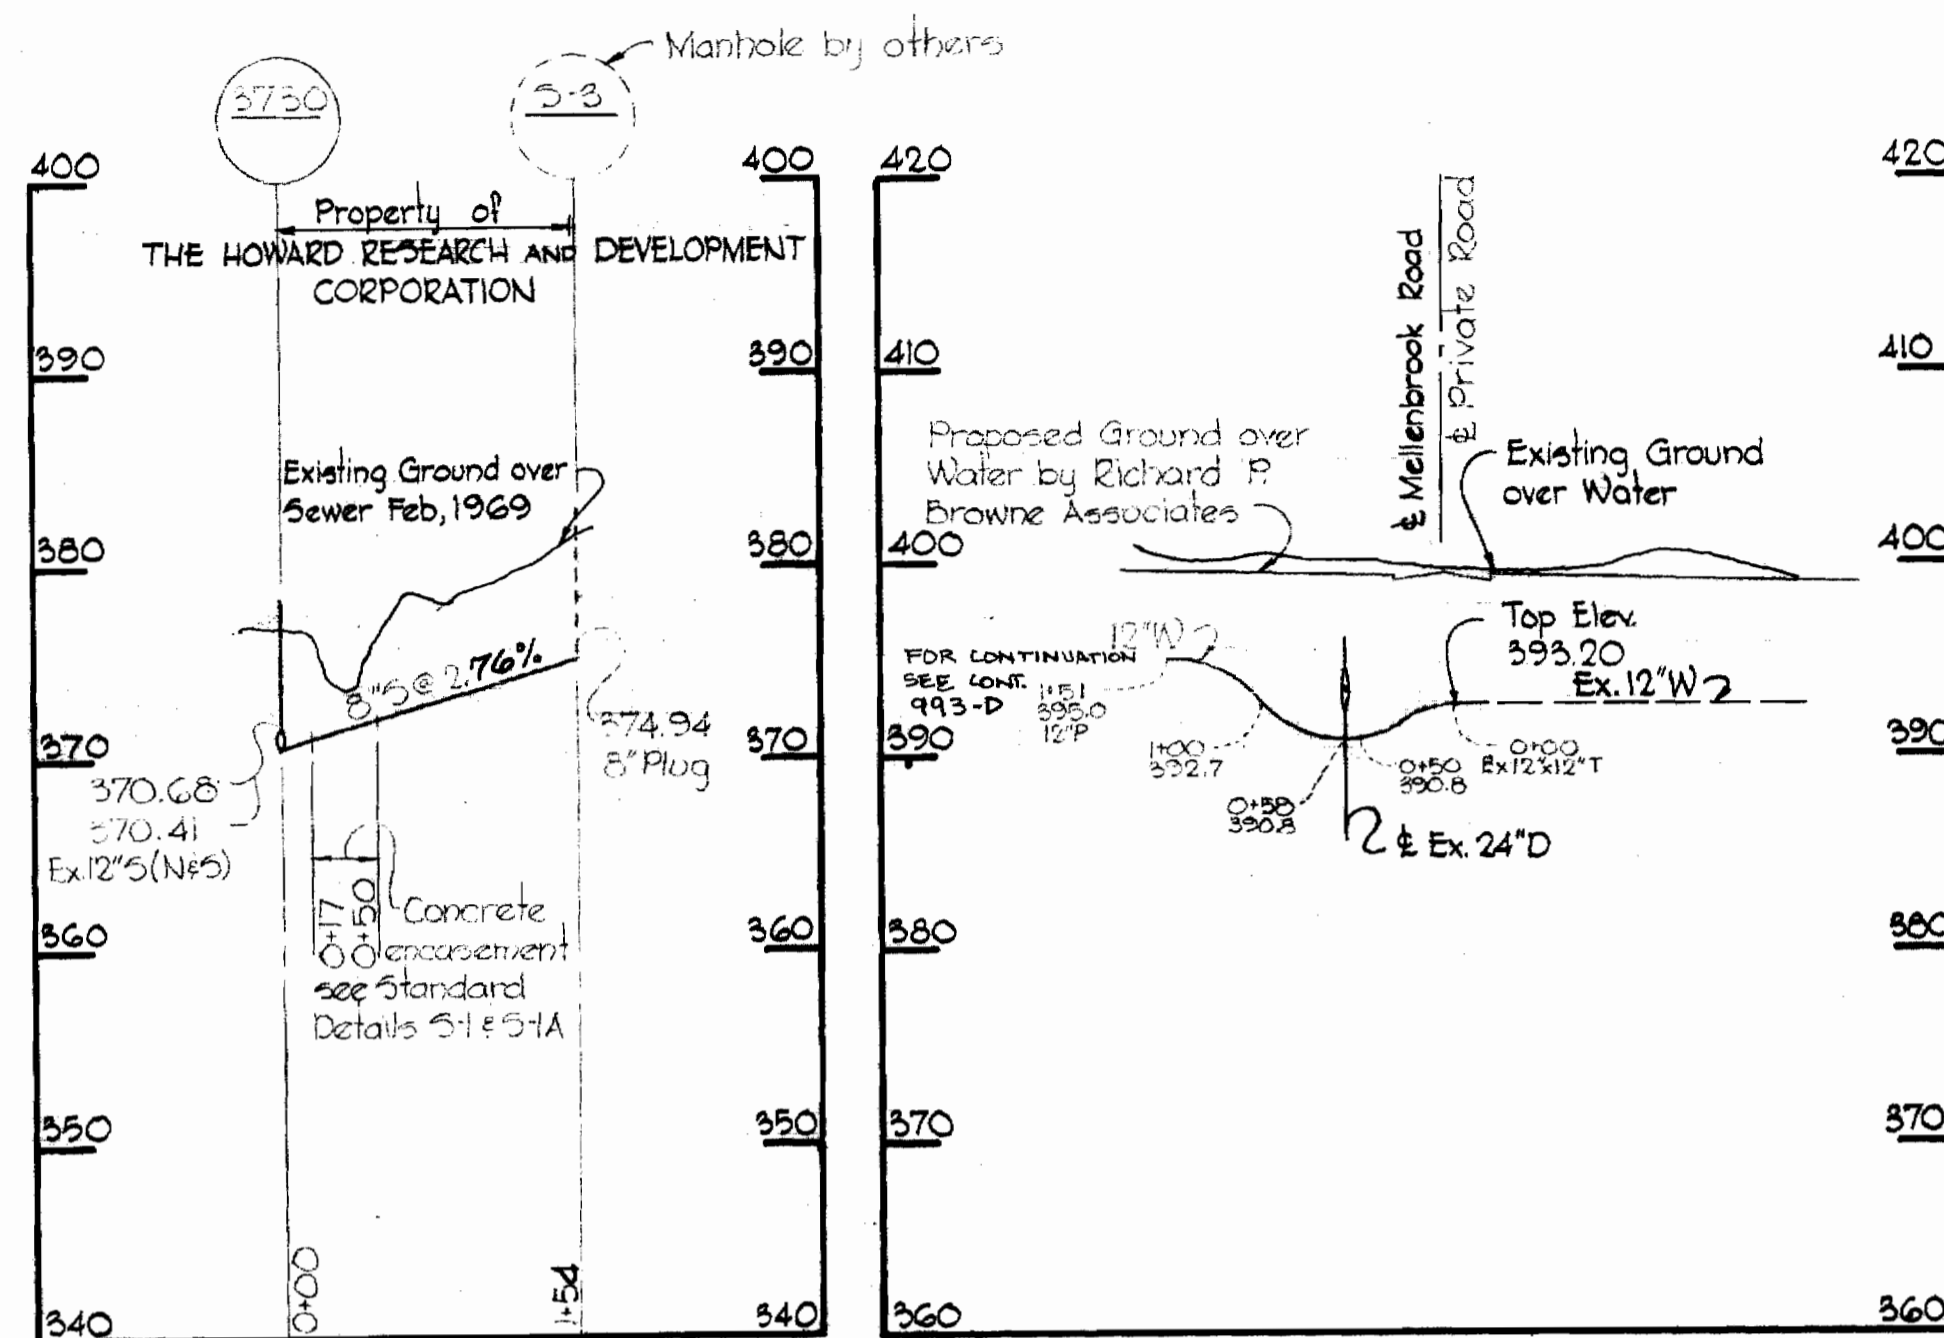 Manhole by others
3730
S-3
400
400
Property of
THE HOWARD RESEARCH AND DEVELOPMENT
CORPORATION
390
390
Existing Ground over
Sewer Feb, 1969
380
380
8"S @ 2.76%
370
370
374.94
8" Plug
370.68
370.41
Ex.12"S (N&S)
0+17
0+50
Concrete
encasement
see Standard
Details S-1 & S-1A
360
360
350
350
340
340
0+00
1+54
420
420
℄ Mellenbrook Road
℄ Private Road
410
410
Proposed Ground over
Water by Richard P.
Browne Associates
Existing Ground
over Water
400
400
12"W
Top Elev.
393.20
Ex. 12"W
FOR CONTINUATION
SEE CONT.
993-D
1+51
395.0
12"P
390
390
1+00
392.7
0+58
390.8
0+50
390.8
0+00
Ex12"x12"T
℄ Ex. 24"D
380
380
370
370
360
360